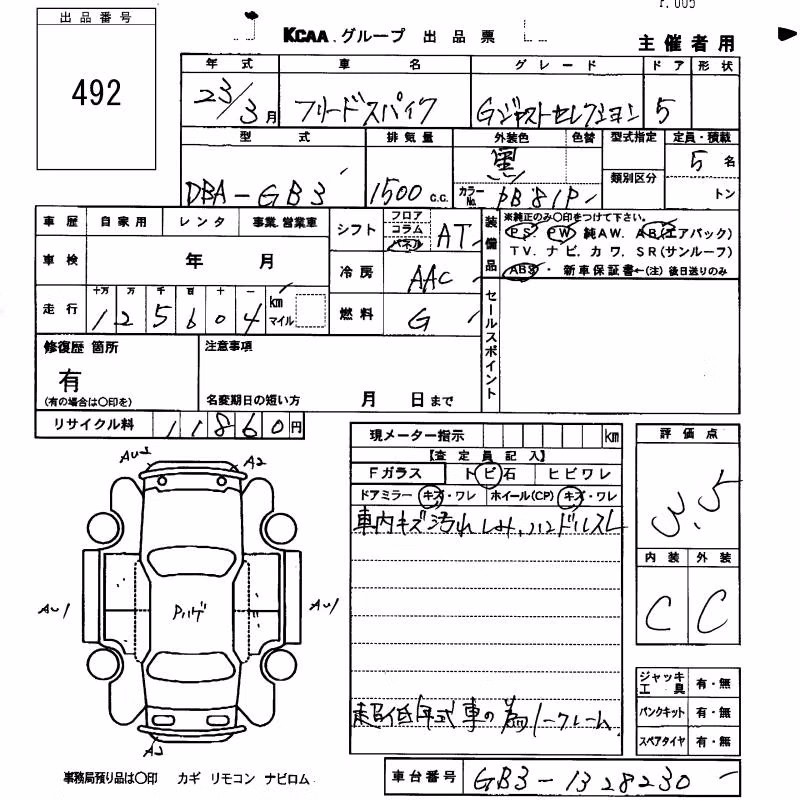 出品番号
492
KCAA グループ 出品票
主催者用
年式 車名 グレード ドア 形状
23/3月 フリードスパイク Gジャストセレクション 5
型式 排気量 外装色 色替 型式指定 定員・積載
DBA-GB3 1500 c.c. 黒 カラーNo. 類別区分 5名
トン
車歴 自家用 レンタ 事業.営業車
シフト フロア コラム パネル AT
装備品 ※純正のみ〇印をつけて下さい。
PS. PW. 純AW. AB(エアバック)
TV. ナビ. カワ. SR(サンルーフ)
ABS・ 新車保証書←(注) 後日送りのみ
車検 年 月
冷房 AAC
走行 十万 万 千 百 十 一 km マイル
1 2 5 6 0 4
燃料 G
セールスポイント
修復歴 箇所
有
(有の場合は〇印を)
注意事項
名変期日の短い方 月 日まで
リサイクル料 11860円
現メーター指示 km
【査定員記入】
Fガラス トビ石 ヒビワレ
ドアミラー キズ・ワレ ホイール(CP) キズ・ワレ
車内キズ汚れしみ、ハンドルスレ
超低年式車の為ノークレーム
評価点
3.5
内装 外装
C C
ジャッキ工具 有・無
パンクキット 有・無
スペアタイヤ 有・無
A2
AU1
Pハゲ
AU1
事務局預り品は〇印 カギ リモコン ナビロム
車台番号 GB3-1328230